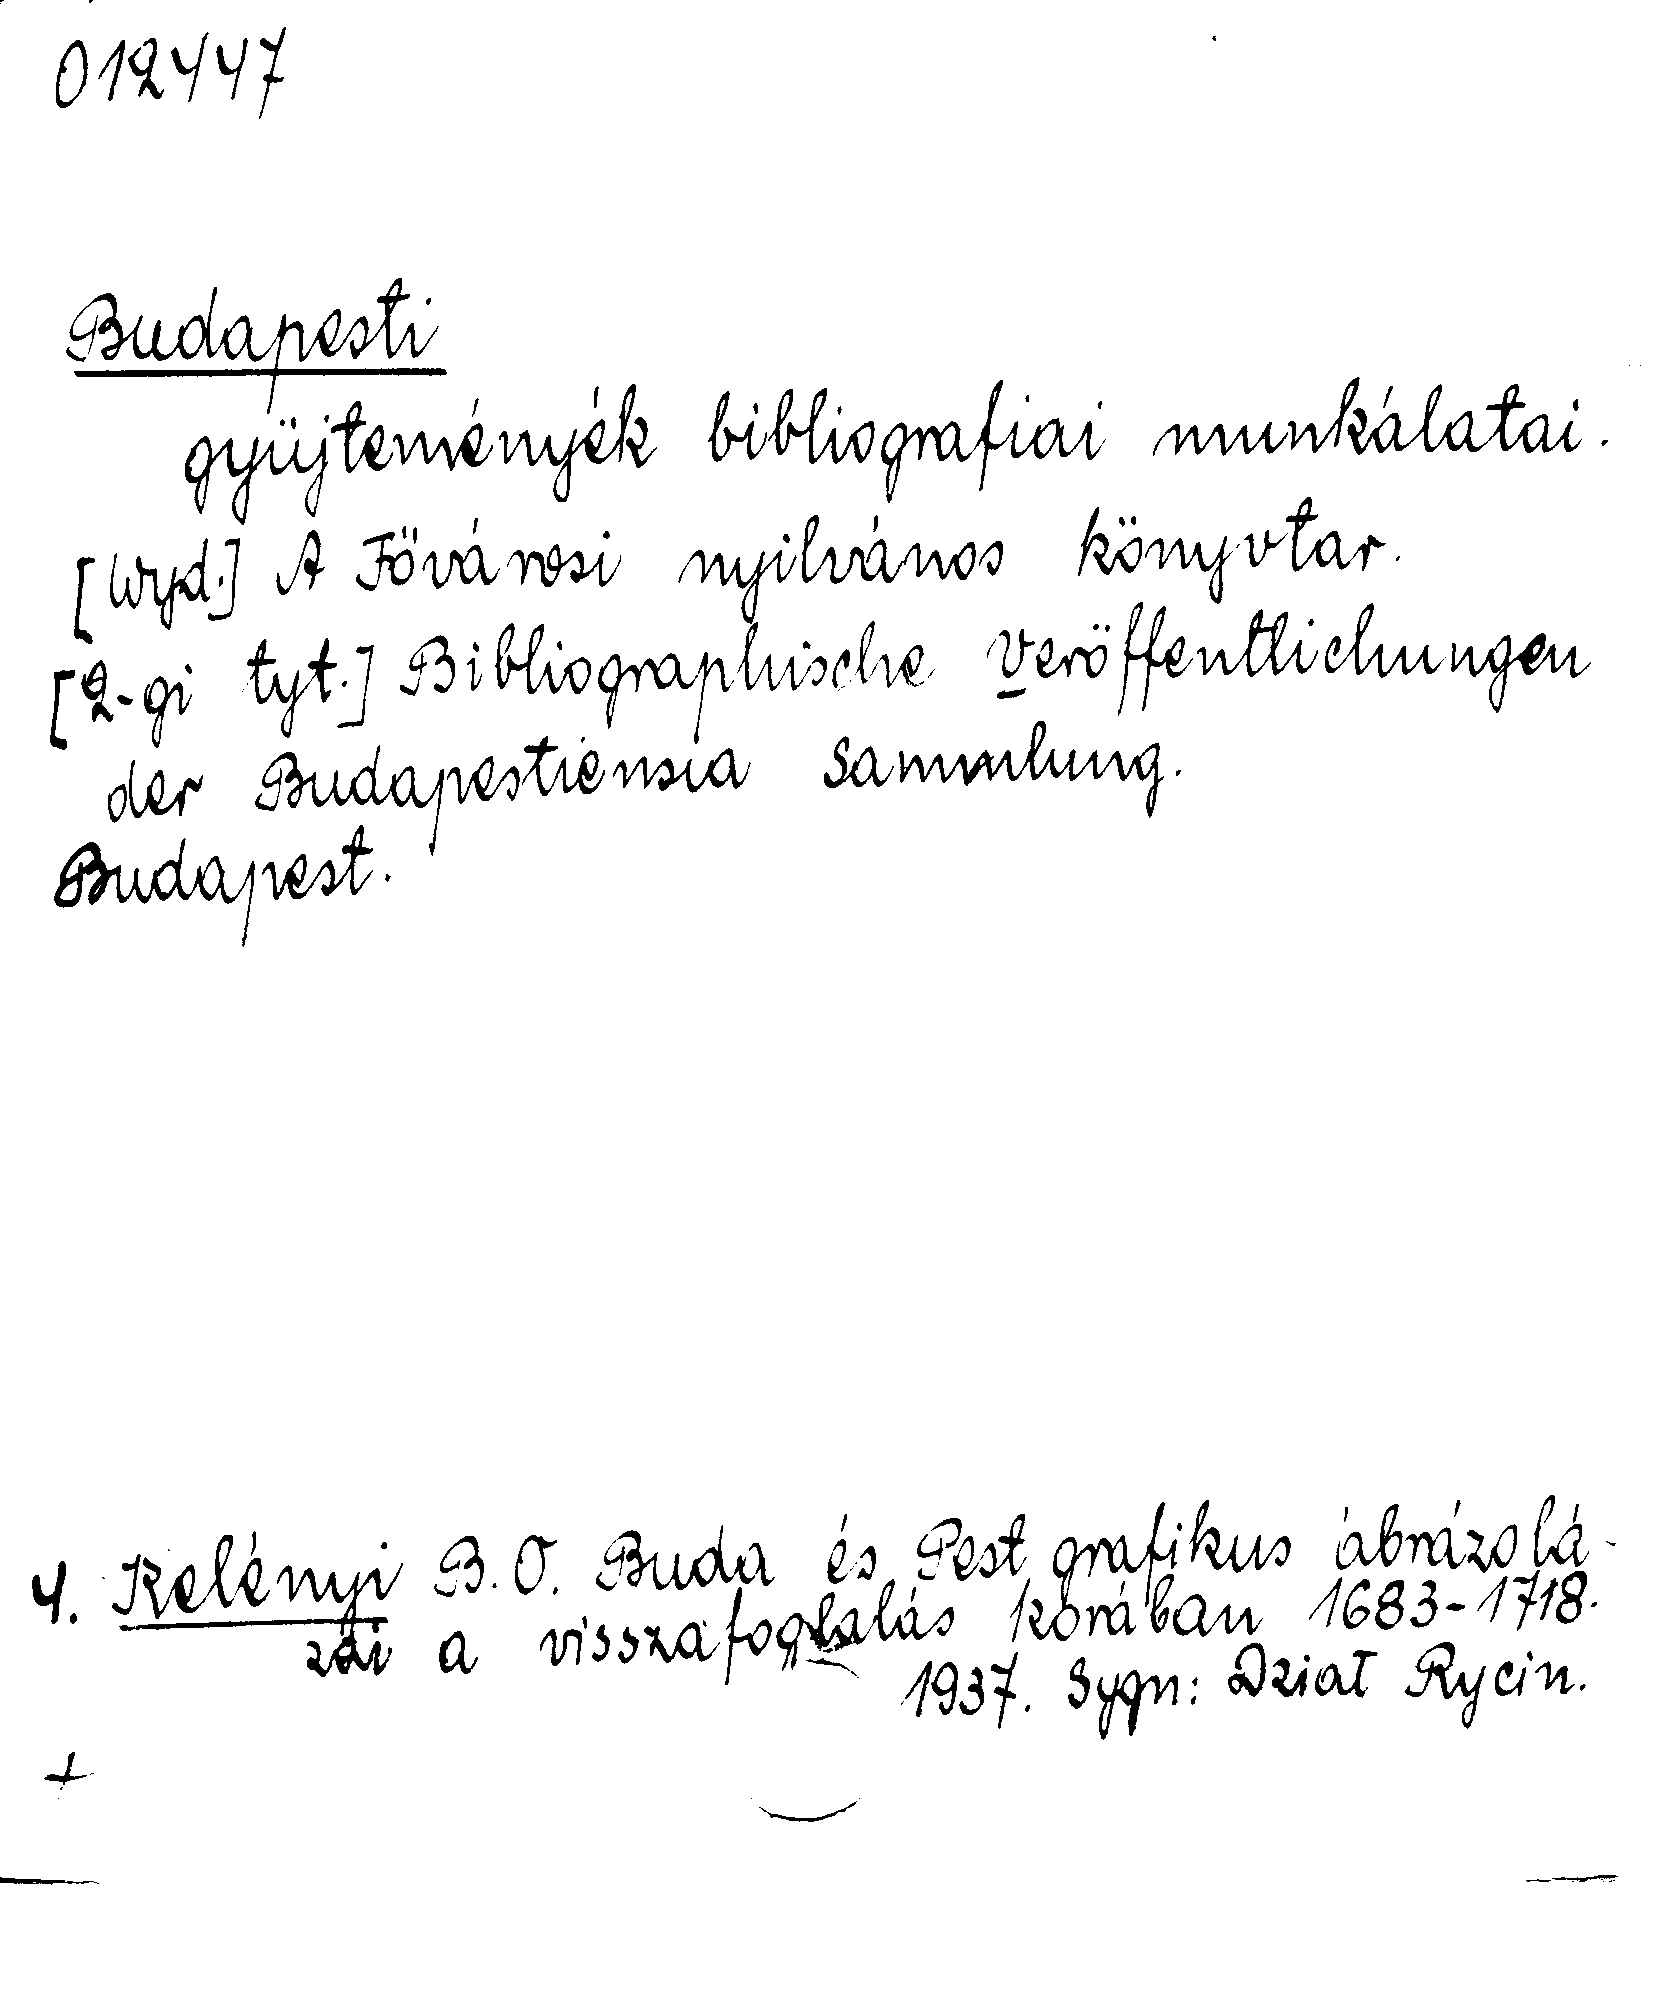 012447
Budapesti
gyüjtemények bibliografiai munkálatai.
[Wyd.] A Fövárosi nyilvános könyvtar.
[2-gi tyt.] Bibliographische Veröffentlichungen
der Budapestiensia Sammlung.
Budapest.
4. Kelényi B.O. Buda és Pest grafikus ábrázolá-
zái a visszafoglalás korában 1683-1718.
1937. Sygn: Dział Rycin.
+